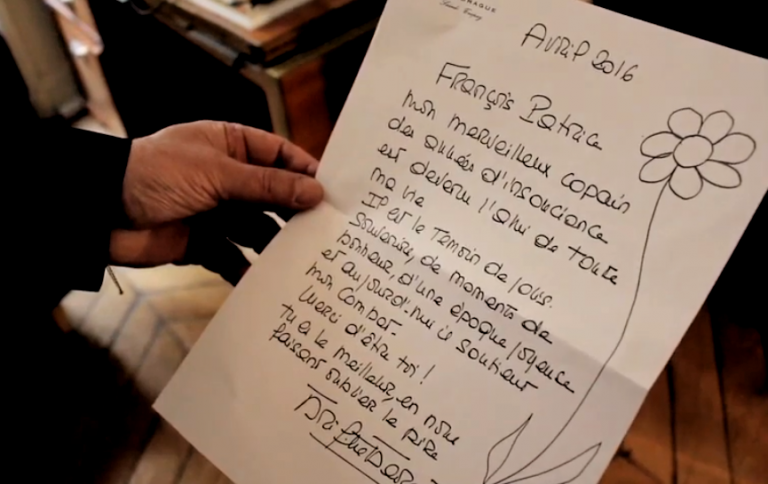 Avril 2016
François Patrice
mon merveilleux copain
des années d'insouciance
est devenu l'ami de toute
ma vie
Il est le Temoin de
souvenirs, de moments de
bonheur, d'une époque joyeuse
et aujourd'hui il soutient
mon combat
Merci d'être toi!
tu es le meilleur, en nous
faisant oublier le pire